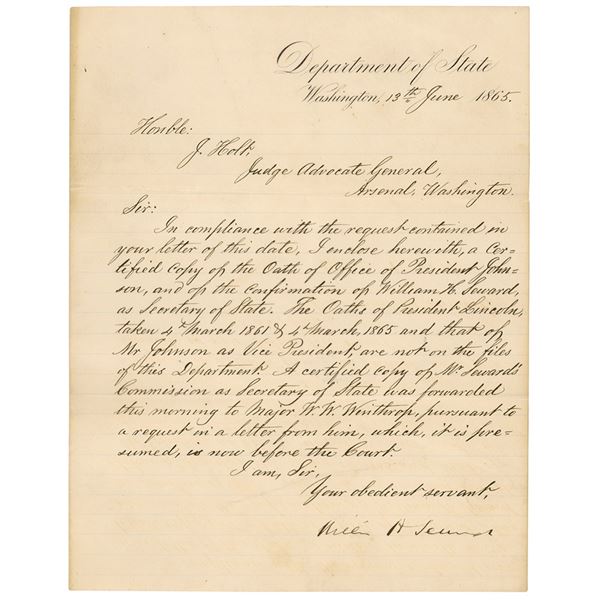 Department of State
Washington, 13th June 1865.
Honble:
J. Holt,
Judge Advocate General,
Arsenal, Washington.
Sir:
In compliance with the request contained in
your letter of this date, I enclose herewith, a cer=
tified copy of the Oath of Office of President John=
son, and of the confirmation of William H. Seward,
as Secretary of State. The Oaths of President Lincoln,
taken 4th March 1861 & 4th March, 1865 and that of
Mr. Johnson as Vice President, are not on the files
of this Department. A certified copy of Mr. Seward's
Commission as Secretary of State was forwarded
this morning to Major W. W. Winthrop, pursuant to
a request in a letter from him, which, it is pre=
sumed, is now before the Court.
I am, Sir,
Your obedient servant,
William H Seward